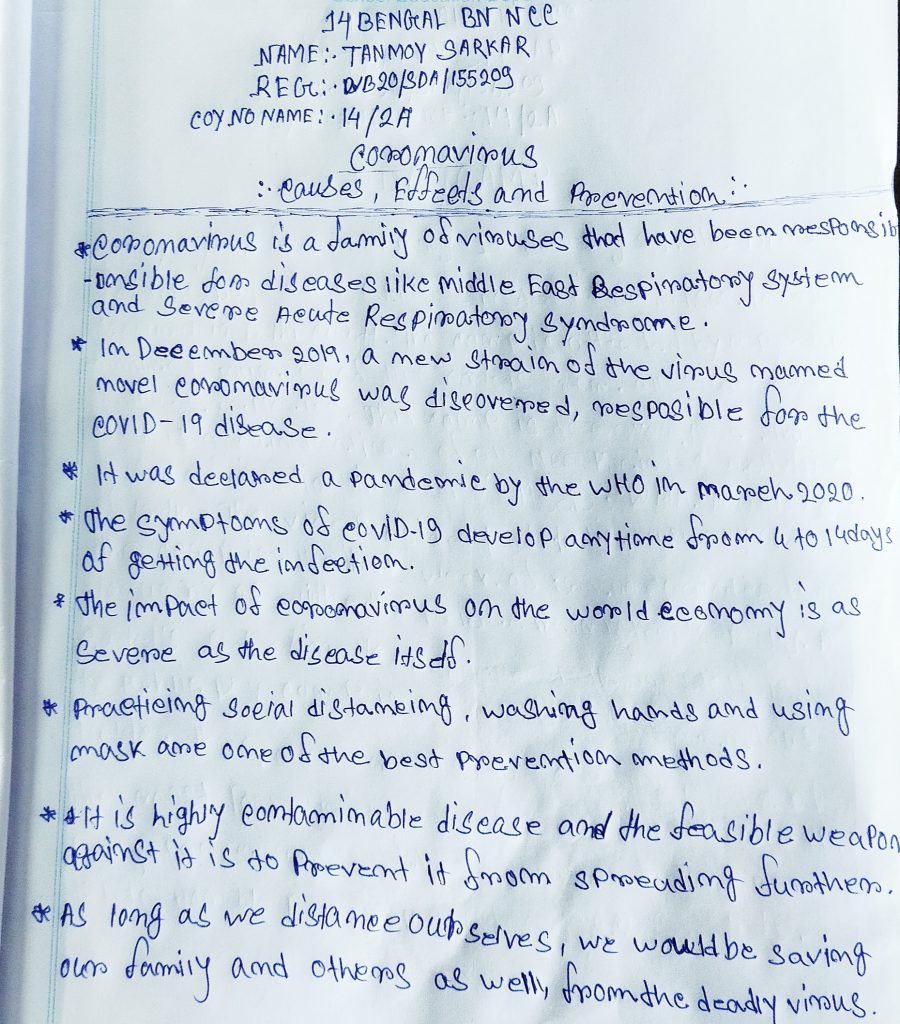 14 BENGAL BN NCC
NAME:- TANMOY SARKAR
REG:- WB20/SDA/155209
COY NO NAME:- 14/2A
Coronavirus
:- Causes, Effects and Prevention :-
* Coronavirus is a family of viruses that have been responsib
-onsible for diseases like middle East Respiratory system
and Severe Acute Respiratory Syndrome.
* In December 2019, a new strain of the virus named
novel coronavirus was discovered, resposible for the
COVID-19 disease.
* It was declared a pandemic by the WHO in march 2020.
* The symptoms of COVID-19 develop anytime from 4 to 14 days
of getting the infection.
* The impact of coronavirus on the world economy is as
Severe as the disease itself.
* Practicing social distancing, washing hands and using
mask are one of the best prevention methods.
* It is highly contaminable disease and the feasible weapon
against it is to prevent it from spreading further.
* As long as we distance ourselves, we would be saving
our family and others as well, from the deadly virus.